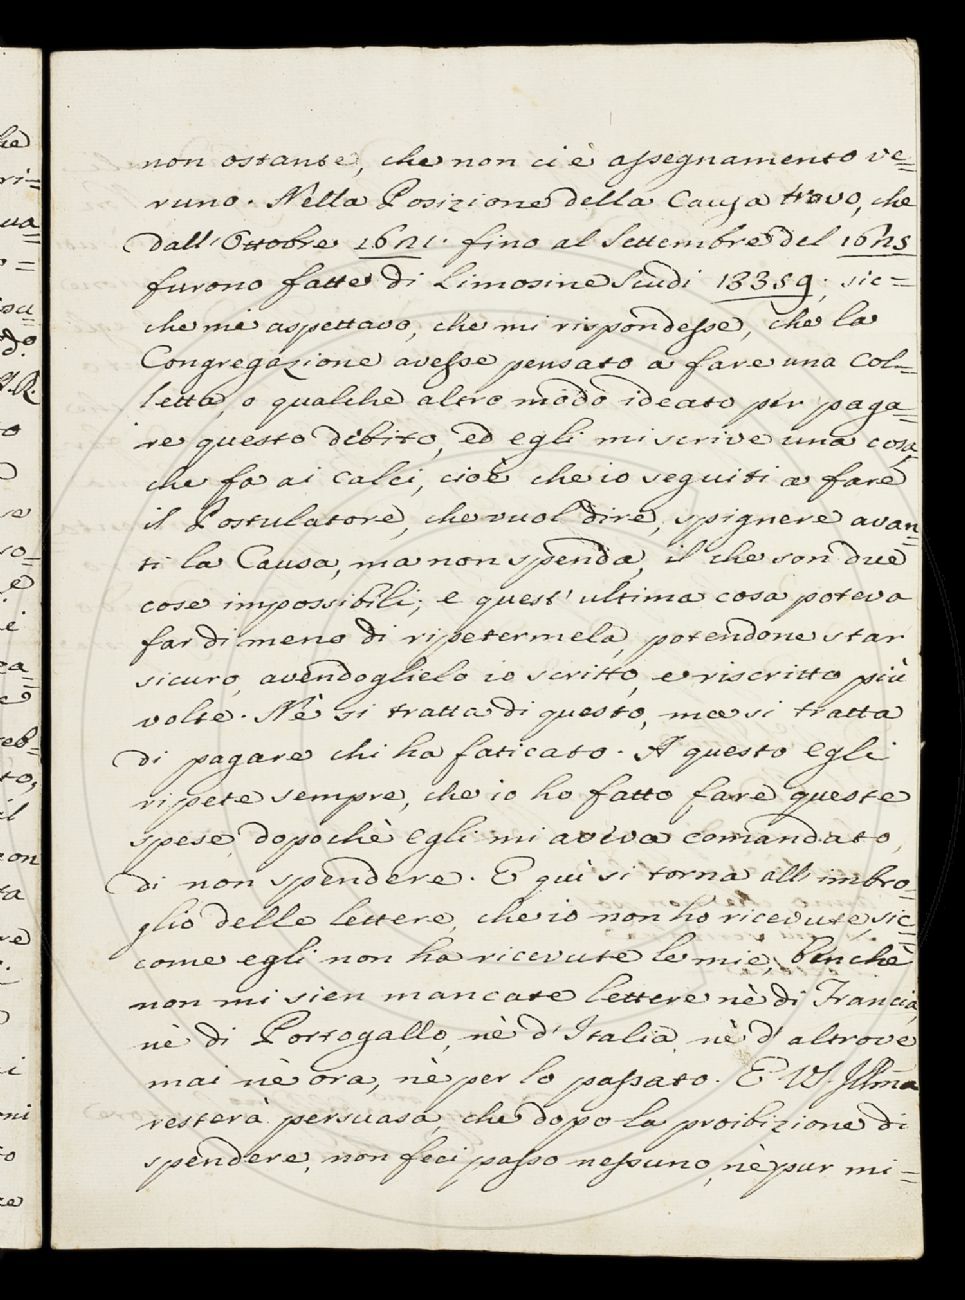 non ostante, che non ci è assegnamento ve=
runo. Nella Posizione della Causa trovo, che
dall'Ottobre fino al Settembre del
furono fatte di Limosine Scudi 13359; sic=
che mi aspettavo, che mi rispondesse, che la
Congregazione avesse pensato a fare una Col=
letta, o qualche altro modo ideato per paga=
re questo debito, ed egli mi scrive una cosa,
che fa ai calci, cioè che io seguiti a fare
il Postulatore, che vuol dire, spignere avan=
ti la Causa, ma non spenda, il che son due
cose impossibili; e quest'ultima cosa poteva
far di meno di ripetermela, potendone star
sicuro, avendoglielo io scritto, e riscritto più
volte. Nè si tratta di questo, ma si tratta
di pagare chi ha faticato. A questo Egli
ripete sempre, che io ho fatto fare queste
spese, dopochè Egli mi aveva comandato,
di non spendere. E quì si torna all'imbro=
glio delle lettere, che io non ho ricevute, sic=
come egli non ha ricevute le mie, benchè
non mi sien mancate lettere nè di Francia,
nè di Portogallo, nè d'Italia, nè d'altrove
mai nè ora, nè per lo passato. E VS. Illma
resterà persuasa, che dopo la proibizione di
spendere, non feci passo nessuno, nè pur mi=